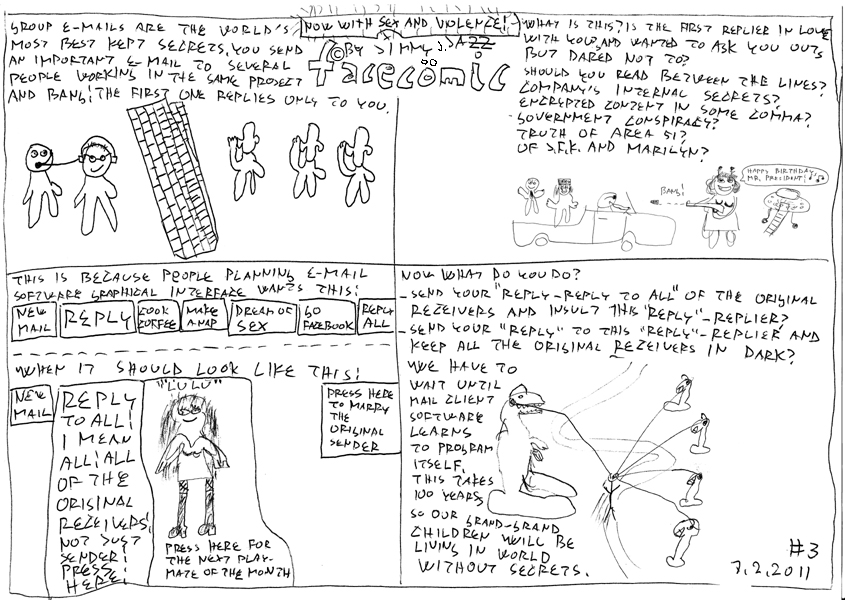 NOW WITH SEX AND VIOLENCE!
© BY JIMMY J. JAZZ
facecomic
GROUP E-MAILS ARE THE WORLD'S
MOST BEST KEPT SECRETS, YOU SEND
AN IMPORTANT E-MAIL TO SEVERAL
PEOPLE WORKING IN THE SAME PROJECT
AND BANG! THE FIRST ONE REPLIES ONLY TO YOU.
WHAT IS THIS? IS THE FIRST REPLIER IN LOVE
WITH YOU? AND WANTED TO ASK YOU OUT?
BUT DARED NOT TO?
SHOULD YOU READ BETWEEN THE LINES?
COMPANY'S INTERNAL SECRETS?
ENCRYPTED CONTENT IN SOME COMMA?
GOVERNMENT CONSPIRACY?
TRUTH OF AREA 51?
OF J.F.K. AND MARILYN?
BANG!
HAPPY BIRTHDAY,
MR. PRESIDENT!
THIS IS BECAUSE PEOPLE PLANNING E-MAIL
SOFTWARE GRAPHICAL INTERFACE WANTS THIS:
NEW
MAIL
REPLY
COOK
COFFEE
MAKE
A NAP
DREAM OF
SEX
GO
FACEBOOK
REPLY
ALL
WHEN IT SHOULD LOOK LIKE THIS:
NEW
MAIL
REPLY
TO ALL!
I MEAN
ALL! ALL
OF THE
ORIGINAL
REZEIVERS!
NOT JUST
SENDER!
PRESS
HERE!
"LULU"
PRESS HERE FOR
THE NEXT PLAY-
MATE OF THE MONTH
PRESS HERE
TO MARRY
THE
ORIGINAL
SENDER
NOW WHAT DO YOU DO?
-SEND YOUR "REPLY-REPLY TO ALL" OF THE ORIGINAL
REZEIVERS AND INSULT THIS "REPLY"-REPLIER?
-SEND YOUR "REPLY" TO THIS "REPLY"-REPLIER AND
KEEP ALL THE ORIGINAL REZEIVERS IN DARK?
WE HAVE TO
WAIT UNTIL
MAIL CLIENT
SOFTWARE
LEARNS
TO PROGRAM
ITSELF.
THIS TAKES
100 YEARS,
SO OUR GRAND-GRAND
CHILDREN WILL BE
LIVING IN WORLD
WITHOUT SECRETS.
#3
7.2.2011